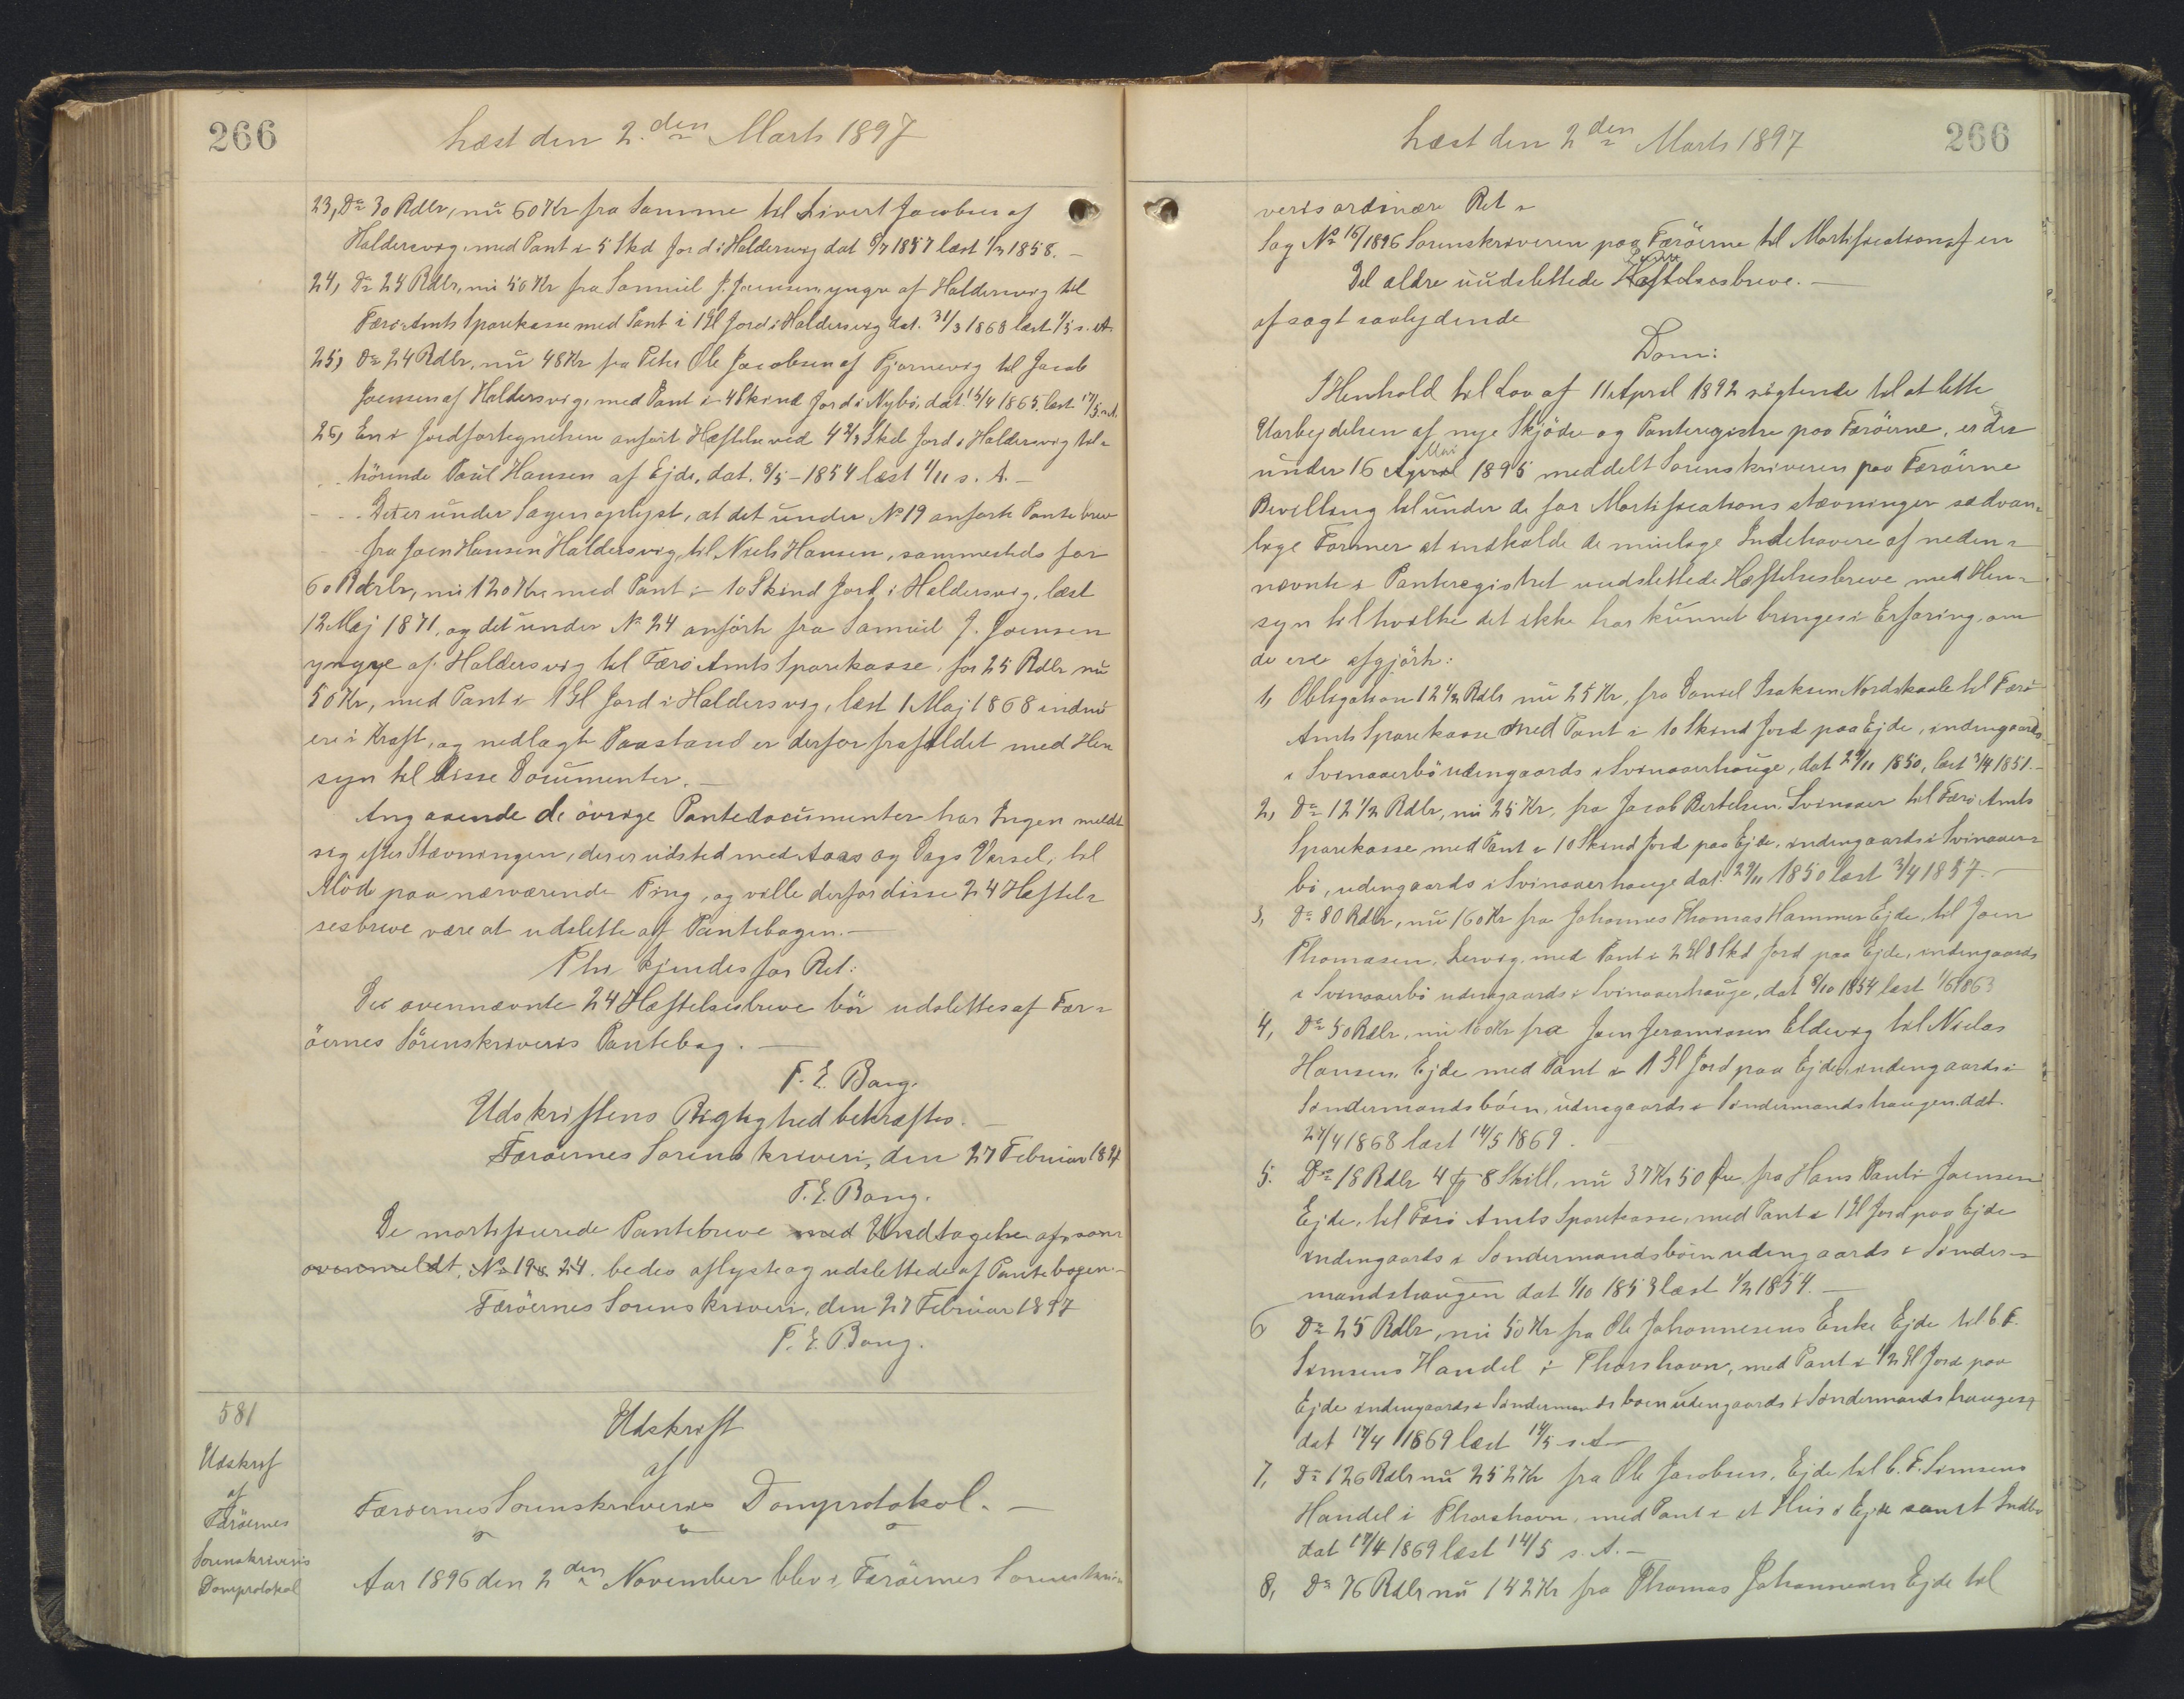 266
Læst den 2.den Marts 1897
23, Do 30 Rdlr, nu 60 Kr fra Samme til Sivert Jacobsen af
Haldersvig, med Pant i 5 Skd Jord i Haldersvig dat 6/7 1857 læst 1/2 1858. -
24, Do 24 Rdlr, nu 50 Kr fra Samuel J. Joensen yngre af Haldersvig til
Færø Amts Sparekasse med Pant i 1 Gl Jord i Haldersvig dat. 31/3 1868 læst 1/5 s. A.
25, Do 24 Rdlr, nu 48 Kr fra Peter Ole Jacobsen af Tjørnevig til Jacob
Joensen af Haldersvig, med Pant i 4 Skind Jord i Nybø, dat. 15/4 1865. læst 17/5 s. A.
26, En i Jordfortegnelsen anført Hæftelse ved 4 2/3 Skd Jord i Haldersvig til=
hørende Poul Hansen af Ejde, dat. 8/5 - 1854 læst 1/11 s. A. -
Det er under Sagen oplyst, at det under No 19 anførte Pantebrev
fra Joen Hansen Haldersvig, til Niels Hansen, sammesteds for
60 Rdlr, nu 120 Kr, med Pant i 10 Skind Jord i Haldersvig, læst
12 Maj 1871, og det under No 24 anførte fra Samuel J. Joensen
yngre af Haldersvig til Færø Amts Sparekasse, for 25 Rdlr nu
50 Kr, med Pant i 1 Gl Jord i Haldersvig, læst 1 Maj 1868 endnu
ere i Kraft, og nedlagte Paastand er derfor frafaldet med Hen
syn til disse Documenter. -
Angaaende de øvrige Pantedocumenter har Ingen meldt
sig efter Stævningen, der er udsted med Aars og Dags Varsel, til
Møde paa nærværende Ting, og ville derfor disse 24 Hæftel=
sesbreve være at udslette af Pantebogen. -
Thi kjendes for Ret:
De ovennævnte 24 Hæftelsesbreve bør udslettes af Fær=
øernes Sorenskriveris Pantebog. -
F. E. Bang.
Udskriftens Rigtighed bekræftes. -
Færøernes Sorenskriveri, den 27 Februar 1897
F. E. Bang.
De mortificerede Pantebreve med Undtagelse af, som
ovenmeldt, No 19 & 24. bedes aflyste og udslettede af Pantebogen. -
Færøernes Sorenskriveri, den 27 Februar 1897
F. E. Bang.
581
Udskrif
af
Færöernes
Sorenskriveris
Domprotokol
Udskrift
af
Færøernes Sorenskriveris Domprotokol. -
Aar 1896 den 2den November blev i Færøernes Sorenskri=
Læst den 2den Marts 1897
266
veris ordinære Ret i
Sag No 16/1896 Sorenskriveren paa Færøerne til Mortification af en
Del ældre uudslettede Hæftelsesbreve. -
afsagt saalydende
Dom:
I Henhold til Lov af 11 April 1892 sigtende til at lette
Uarbejdelsen af nye Skjøde og Panteregistre paa Færøerne, er der
under 16 April Mai 1895 meddelt Sorenskriveren paa Færøerne
Bevilling til under de for Mortifications stævninger sædvan=
lige Former at indkalde de mulige Indehavere af neden=
nævnte i Panteregistret uudslettede Hæftelsesbreve med Hen=
syn til hvilke det ikke har kunnet bringes i Erfaring, om
de ere afgjørte:
1, Obligation 12 1/2 Rdlr nu 25 Kr, fra Daniel Isaksen Nordskaale til Færø
Amts Sparekasse med Pant i 10 Skind Jord paa Ejde, indengaards
i Svinaaerbø udengaards i Svinaaerhauge, dat 29/11 1850, læst 3/4 1851. -
2, Do 12 1/2 Rdlr, nu 25 Kr, fra Jacob Bertelsen Svinaaer til Færø Amts
Sparekasse med Pant i 10 Skind Jord paa Ejde, indengaards i Svinaaer=
bø, udengaards i Svinaaerhauge dat. 29/11 1850 læst 3/4 1857. -
3, Do 80 Rdlr, nu 160 Kr fra Johannes Thomas Hammer Ejde, til Joen
Thomasen, Lervig, med Pant i 2 Gl 8 Skd Jord paa Ejde, indengaards
i Svinaaerbø udengaards i Svinaaerhauge, dat 9/10 1854 læst 1/6 1863
4, Do 50 Rdlr, nu 100 Kr fra Joen Jeramiasen Eldevig til Niclas
Hansen, Ejde med Pant i 1 Gl Jord paa Ejde, indengaards i
Søndermandsbøen, udengaards i Søndermandshaugen. dat.
24/4 1868 læst 14/5 1869. -
5. Do 18 Rdlr 4 # 8 Skill, nu 37 Kr 50 Øre, fra Hans Pauli Joensen
Ejde, til Færø Amts Sparekasse, med Pant i 1 Gl Jord paa Ejde
indengaards i Søndermandsbøen udengaards i Sønder=
mandshaugen dat 1/10 1853 læst 1/2 1854. -
6 Do 25 Rdlr, nu 50 Kr fra Ole Johannesens Enke Ejde til C. F.
Simsens Handel i Thorshavn, med Pant i 1/2 Gl Jord paa
Ejde indengaards i Søndermandsbøen udengaards i Søndermandshaugen,
dat 17/4 1869 læst 14/5 s. A. -
7, Do 126 Rdlr nu 252 Kr fra Ole Jacobsen, Ejde til C. F. Simsens
Handel i Thorshavn, med Pant i et Hus i Ejde samt Indbo
dat 17/4 1869 læst 14/5 s. A. -
8, Do 76 Rdlr nu 142 Kr fra Thomas Johannesen Ejde til